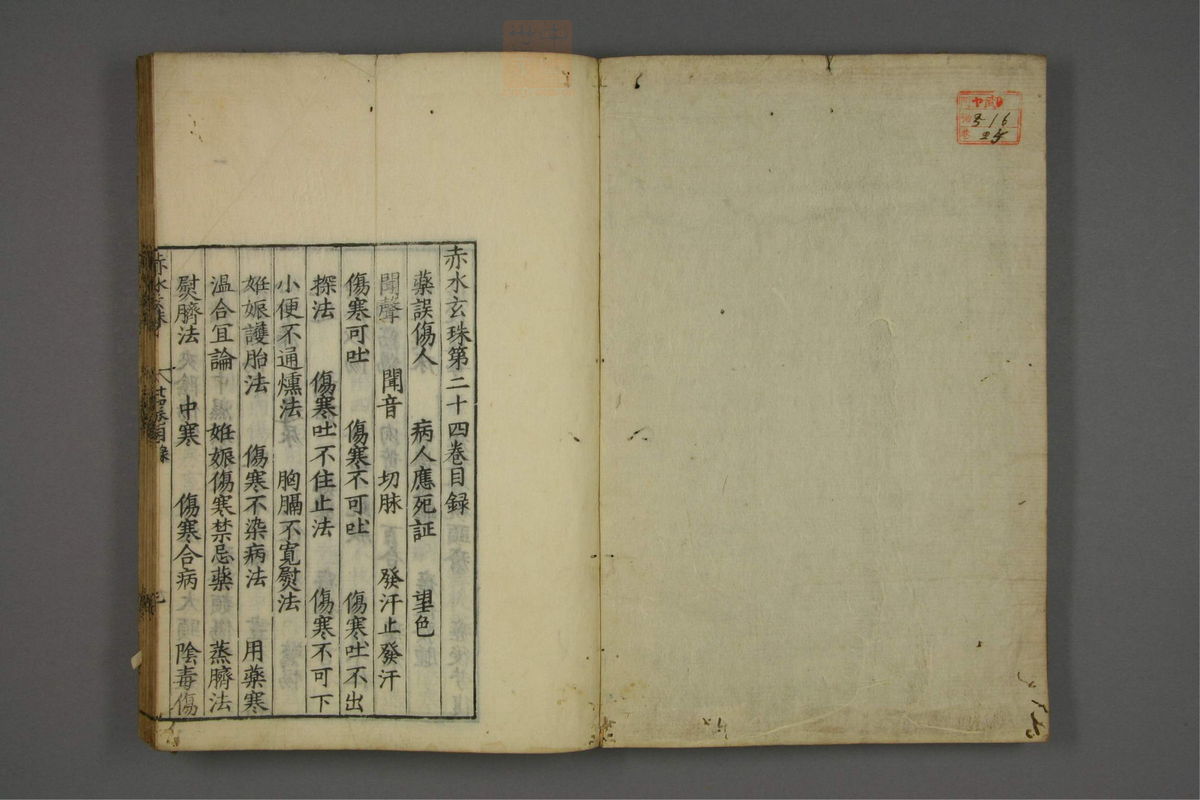 赤水玄珠第二十四卷目録
藥誤傷人 病人應死証 望色
聞聲 聞音 切脉 發汗止發汗
傷寒可吐 傷寒不可吐 傷寒吐不出
探法 傷寒吐不住止法 傷寒不可下
小便不通燻法 胸膈不寬熨法
妊娠護胎法 傷寒不染病法 用藥寒
温合宜論 妊娠傷寒禁忌藥 蒸臍法
熨臍法 中寒 傷寒合病 陰毒傷
316